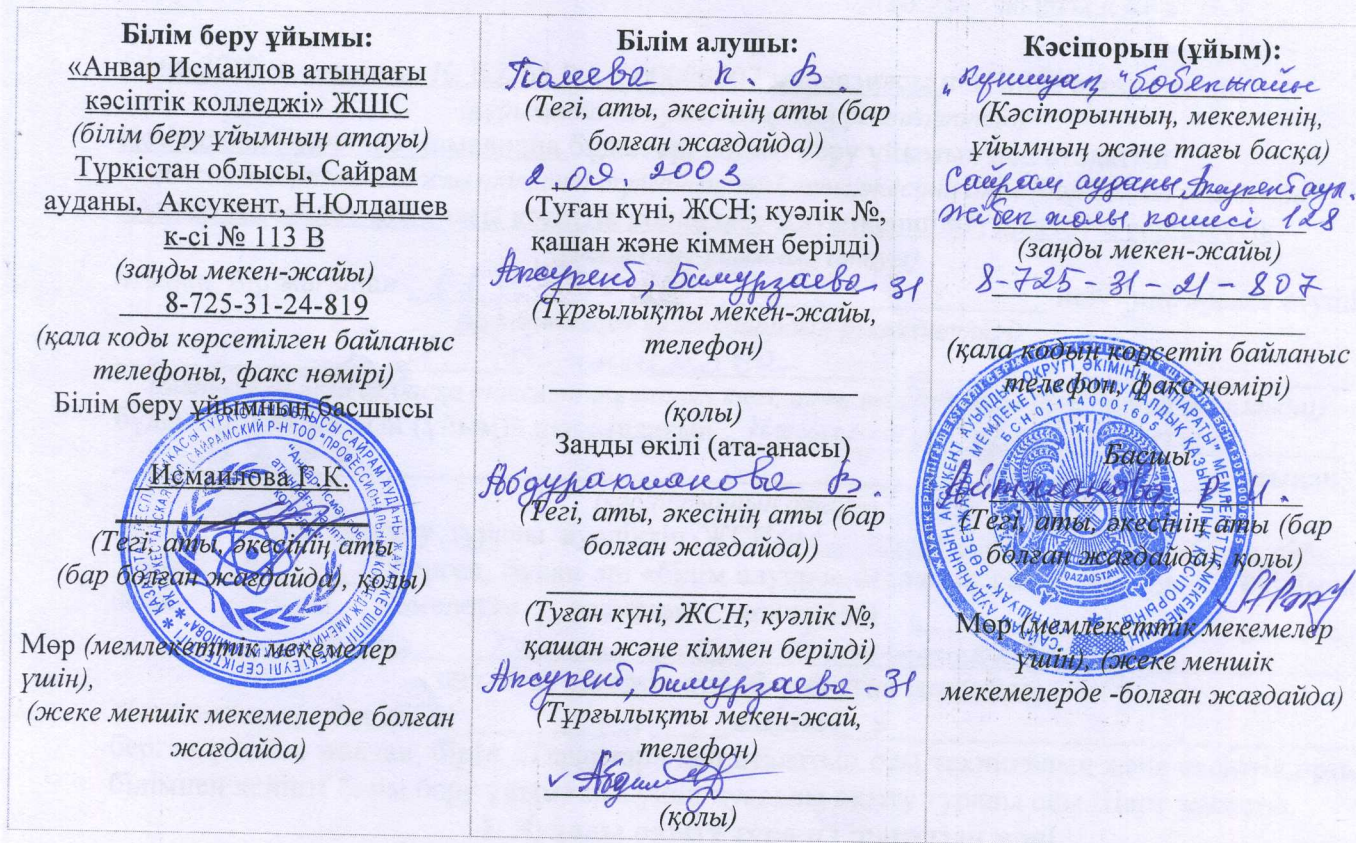 Білім беру ұйымы:
«Анвар Исмаилов атындағы
кәсіптік колледжі» ЖШС
(білім беру ұйымның атауы)
Түркістан облысы, Сайрам
ауданы, Аксукент, Н.Юлдашев
к-сі № 113 В
(заңды мекен-жайы)
8-725-31-24-819
(қала коды көрсетілген байланыс
телефоны, факс нөмірі)
Білім беру ұйымның басшысы
Исмаилова Г.К.
(Тегі, аты, әкесінің аты
(бар болған жағдайда), қолы)
Мөр (мемлекеттік мекемелер
үшін),
(жеке меншік мекемелерде болған
жағдайда)
Білім алушы:
К. В.
(Тегі, аты, әкесінің аты (бар
болған жағдайда))
2.09.2003
(Туған күні, ЖСН; куәлік №,
қашан және кіммен берілді)
Аксукент, Бимурзаева-31
(Тұрғылықты мекен-жайы,
телефон)
(қолы)
Заңды өкілі (ата-анасы)
Абдурахманова В.
(Тегі, аты, әкесінің аты (бар
болған жағдайда))
(Туған күні, ЖСН; куәлік №,
қашан және кіммен берілді)
Аксукент, Бимурзаева-31
(Тұрғылықты мекен-жай,
телефон)
(қолы)
Кәсіпорын (ұйым):
"Күншуақ" бөбекжайы
(Кәсіпорынның, мекеменің,
ұйымның және тағы басқа)
Сайрам ауданы, Аксукент аул.
Жібек жолы көшесі 128
(заңды мекен-жайы)
8-725-31-21-807
(қала кодың көрсетіп байланыс
телефон, факс нөмірі)
Басшы
Р. И.
(Тегі, аты, әкесінің аты (бар
болған жағдайда), қолы)
Мөр (мемлекеттік мекемелер
үшін), (жеке меншік
мекемелерде -болған жағдайда)
БСН 011140001605
QAZAQSTAN